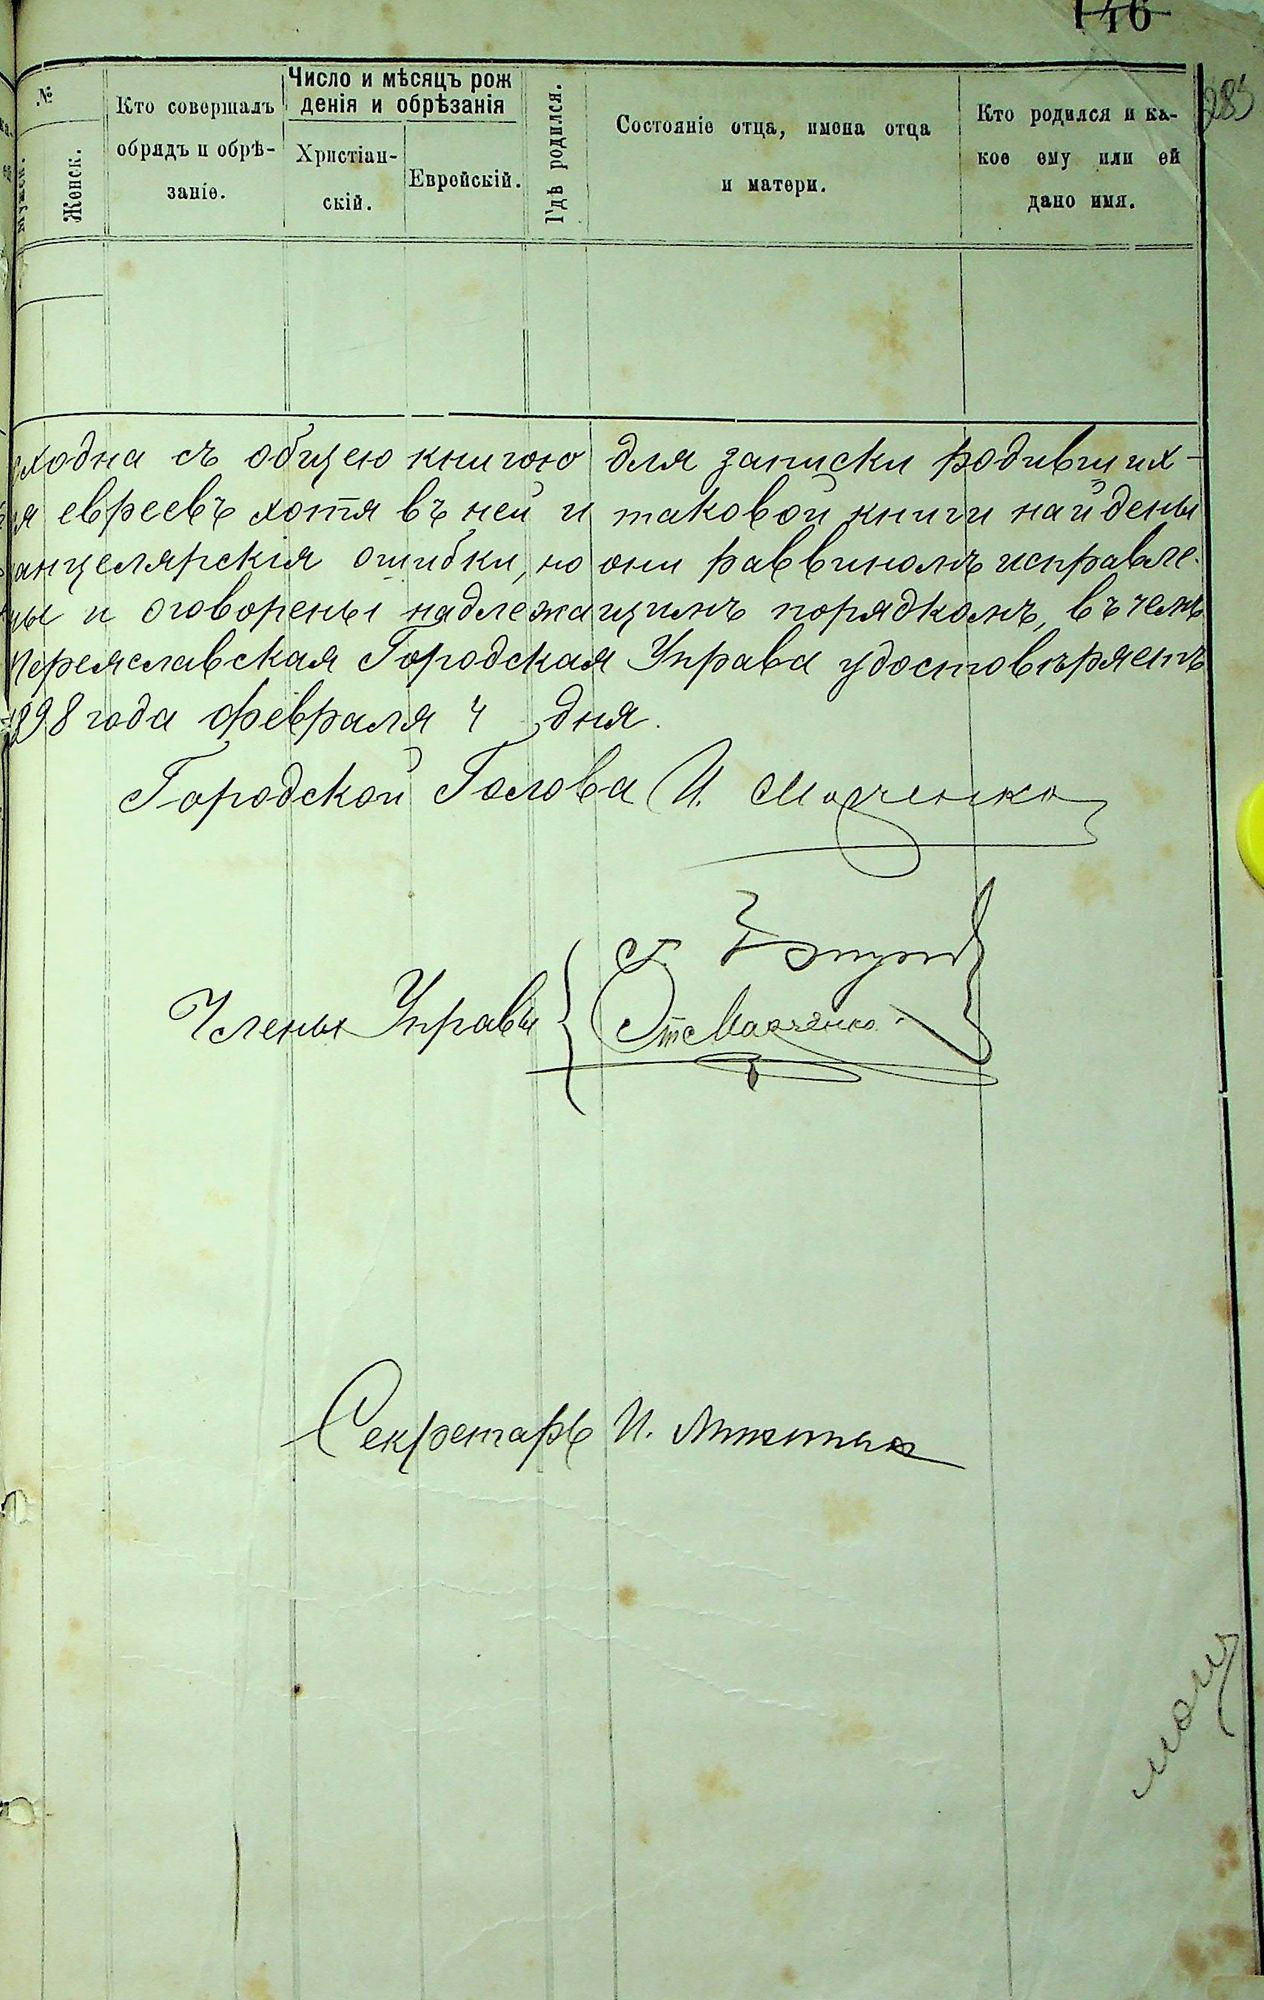 146
285
№
Мужск.
Женск.
Кто совершалъ
обрядъ и обрѣ-
заніе.
Число и мѣсяцъ рож
денія и обрѣзанія
Христіан-
скій.
Еврейскій.
Гдѣ родился.
Состояніе отца, имена отца
и матери.
Кто родился и ка-
кое ему или ей
дано имя.
сходна съ общею книгою для записки родивших-
ся евреевъ хотя въ ней и таковой книги найдены
канцелярскія ошибки, но они раввиномъ исправле-
ны и оговорены надлежащимъ порядкомъ, въ чемъ
Переяславская Городская Управа удостовѣряетъ
1898 года февраля 4 дня.
Городской Голова И.
Члены Управы
Секретарь И.